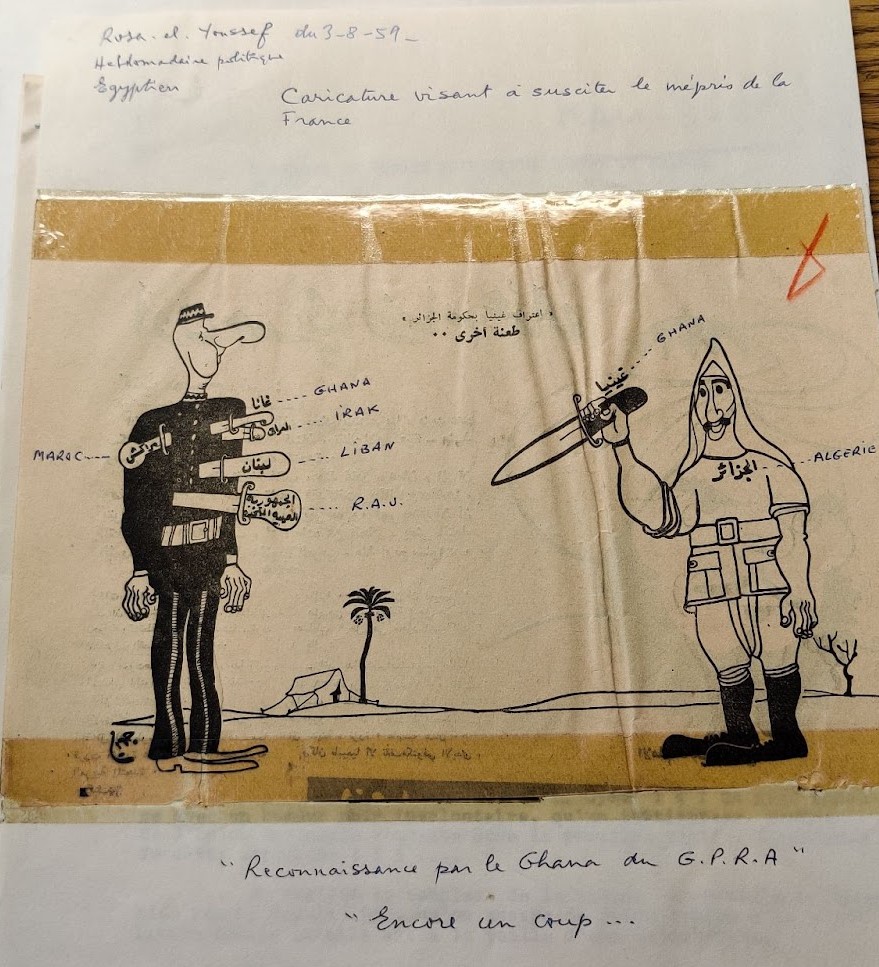 Rosa-el-Youssef du 3-8-59_
Hebdomadaire politique
Egyptien
Caricature visant à susciter le mépris de la
France
« اعتراف غينيا بحكومة الجزائر »
طعنة أخرى ..
غانا
GHANA
العراق
IRAK
MAROC
مراكش
لبنان
LIBAN
الجمهورية
العربية المتحدة
R.A.U.
غينيا
GHANA
الجزائر
ALGERIE
"Reconnaissance par le Ghana du G.P.R.A"
"Encore un coup...